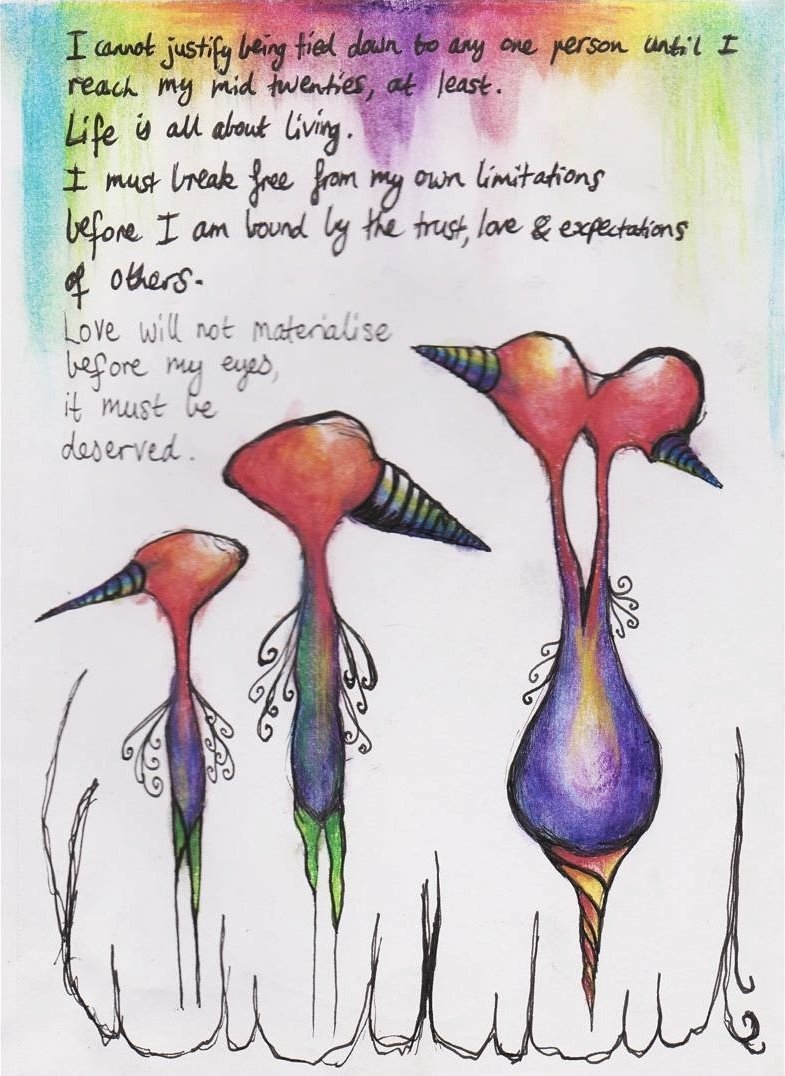 I cannot justify being tied down to any one person until I
reach my mid twenties, at least.
Life is all about living.
I must break free from my own limitations
before I am bound by the trust, love & expectations
of others.
Love will not materialise
before my eyes,
it must be
deserved.